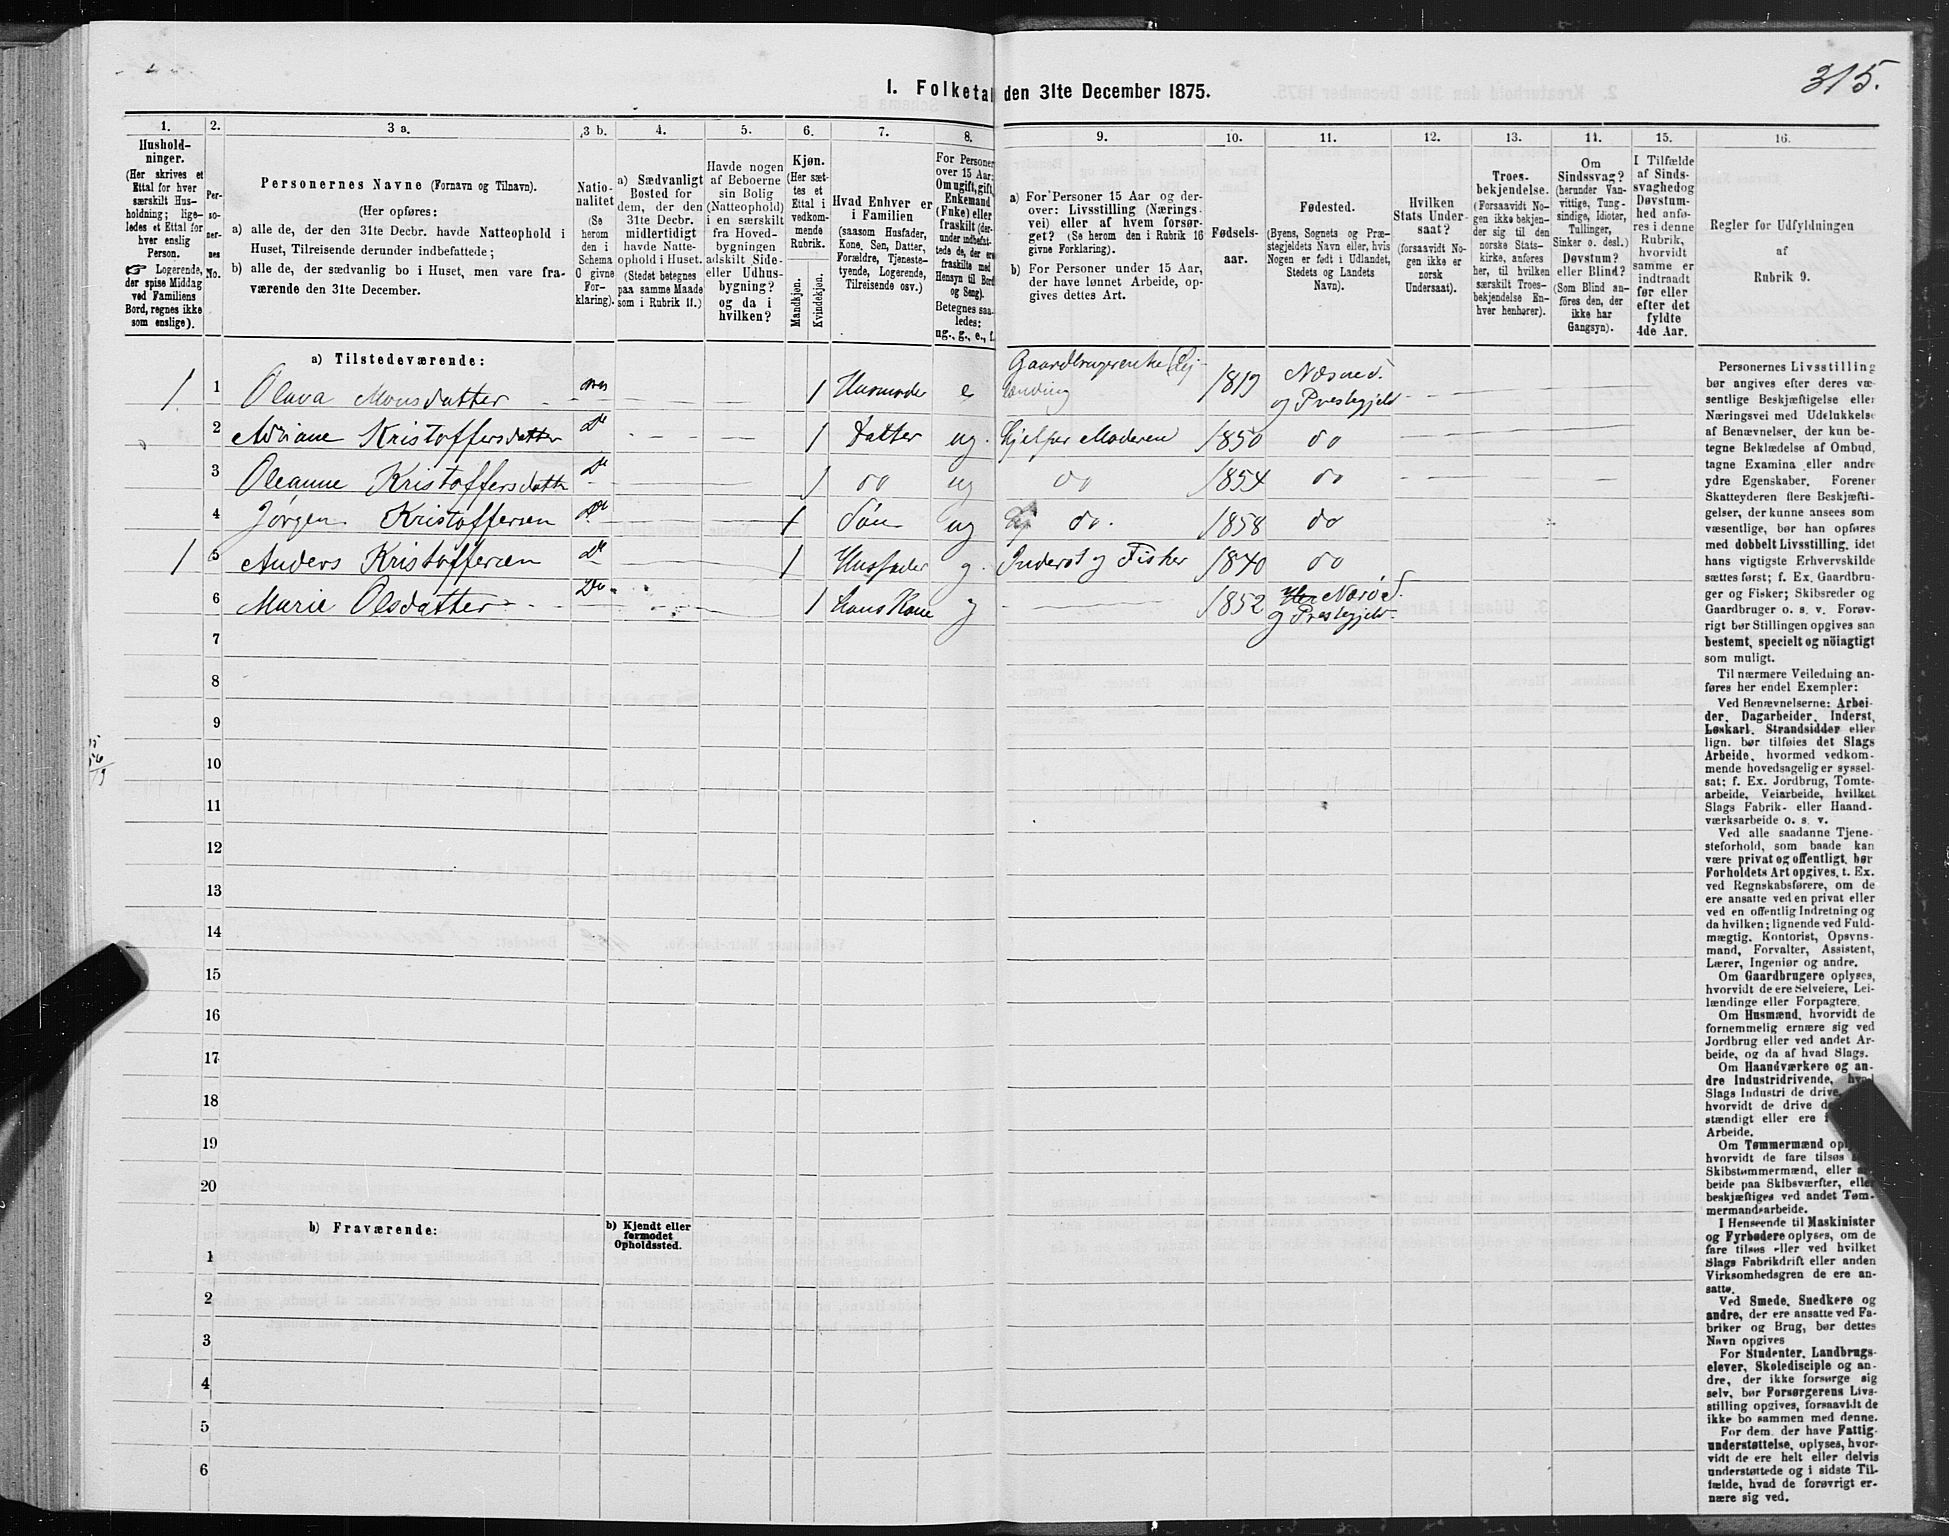 315.
1. Folketal den 31te December 1875.
1. 2. 3 a. 3 b. 4. 5. 6. 7. 8. 9. 10. 11. 12. 13. 14. 15. 16.
Hushold-
ninger.
(Her skrives et
Ettal for hver
særskilt Hus-
holdning; lige-
ledes et Ettal for
hver enslig
Person.
☞ Logerende,
der spise Middag
ved Familiens
Bord, regnes ikke
som enslige).
Per-
so-
ner-
nes
No.
Personernes Navne (Fornavn og Tilnavn).
(Her opføres:
a) alle de, der den 31te Decbr. havde Natteophold i
Huset, Tilreisende derunder indbefattede;
b) alle de, der sædvanlig bo i Huset, men vare fra-
værende den 31te December.
Natio-
nalitet
(Se
herom
den i
Schema
O givne
For-
klaring).
a) Sædvanligt
Bosted for
dem, der den
31te Decbr.
midlertidigt
havde Natte-
ophold i Huset.
(Stedet betegnes
paa samme Maade
som i Rubrik 11.)
Havde nogen
af Beboerne
sin Bolig
(Natteophold)
i en særskilt
fra Hoved-
bygningen
adskilt Side-
eller Udhus-
bygning?
og da i
hvilken?
Kjøn.
(Her sæt-
tes et
Ettal i
vedkom-
mende
Rubrik.
Mandkjøn.
Kvindekjøn.
Hvad Enhver er
i Familien
(saasom Husfader,
Kone, Søn, Datter,
Forældre, Tjeneste-
tyende, Logerende,
Tilreisende osv.)
For Personer
over 15 Aar:
Om ugift, gift,
Enkemand
(Enke) eller
fraskilt (der-
under indbefat-
tede de, der ere
fraskilte med
Hensyn til Bord
og Seng).
Betegnes saa-
ledes:
ug., g., e., f.
a) For Personer 15 Aar og der-
over: Livsstilling (Nærings-
vei) eller af hvem forsør-
get? (Se herom den i Rubrik 16
givne Forklaring).
b) For Personer under 15 Aar,
der have lønnet Arbeide, op-
gives dettes Art.
Fødsels-
aar.
Fødested.
(Byens, Sognets og Præ-
stegjeldets Navn eller, hvis
Nogen er født i Udlandet,
Stedets og Landets
Navn).
Hvilken
Stats Under-
saat?
(forsaavidt No-
gen ikke er
norsk
Undersaat).
Troes-
bekjendelse.
(Forsaavidt No-
gen ikke bekjen-
der sig til den
norske Stats-
kirke, anføres
her, til hvilken
særskilt Troes-
bekjendelse En-
hver henhører).
Om
Sindssvag?
(herunder Van-
vittige, Tung-
sindige, Idioter,
Tullinger,
Sinker o. desl.)
Døvstum?
eller Blind?
(Som Blind an-
føres den, der
ikke har
Gangsyn).
I Tilfælde
af Sinds-
svaghed og
Døvstum-
hed anfø-
res i denne
Rubrik,
hvorvidt
samme er
indtraadt
før eller
efter det
fyldte
4de Aar.
Regler for Udfyldningen
af
Rubrik 9.
a) Tilstedeværende:
1 1 Olava Monsdatter nor 1 Husmoder e Gaardbrugerenke Lej- lænding 1819 Næsne S. og Prestegjeld
2 Adriane Kristoffersdatter Do 1 Datter ug. hjelper Moderen 1850 do
3 Oleanne Kristoffersdatter Do 1 do ug do 1854 do
4 Jørgen Kristoffersen Do 1 Søn ug do. 1858 do
1 5 Anders Kristoffersen Do 1 Husfader g. Inderst og Fisker 1840 do
6 Marie Olsdatter Do 1 hans Kone g 1852 Nærø S. og Prestegjeld.
7
8
9
10
11
12
13
14
15
16
17
18
19
20
b) Fraværende:
b) Kjendt eller
formodet
Opholdssted.
1
2
3
4
5
6
Personernes Livsstilling
bør angives efter deres væ-
sentlige Beskjæftigelse eller
Næringsvei med Udelukkelse
af Benævnelser, der kun be-
tegne Beklædelse af Ombud,
tagne Examina eller andre
ydre Egenskaber. Forener
Skatteyderen flere Beskjæfti-
gelser, der kunne ansees som
væsentlige, bør han opføres
med dobbelt Livsstilling, idet
hans vigtigste Erhvervskilde
sættes først; f. Ex. Gaardbru-
ger og Fisker; Skibsreder og
Gaardbruger o. s. v. Forøv-
rigt bør Stillingen opgives saa
bestemt, specielt og nöiagtigt
som muligt.
Til nærmere Veiledning an-
føres her endel Exempler:
Ved Benævnelserne: Arbei-
der, Dagarbeider, Inderst,
Løskarl, Strandsidder eller
lign. bør tilføies det Slags
Arbeide, hvormed vedkom-
mende hovedsagelig er syssel-
sat; f. Ex. Jordbrug, Tomte-
arbeide, Veiarbeide, hvilket
Slags Fabrik- eller Haand-
værksarbeide o. s. v.
Ved alle saadanne Tjene-
steforhold, som baade kan
være privat og offentligt, bør
Forholdets Art opgives, t. Ex.
ved Regnskabsførere, om de
ere ansatte ved en privat eller
ved en offentlig Indretning og
da hvilken; lignende ved Fuld-
mægtig, Kontorist, Opsyns-
mand, Forvalter, Assistent,
Lærer, Ingeniør og andre.
Om Gaardbrugere oplyses,
hvorvidt de ere Selveiere, Lei-
lændinge eller Forpagtere.
Om Husmænd, hvorvidt de
fornemmelig ernære sig ved
Jordbrug eller ved andet Ar-
beide, og da af hvad Slags.
Om Haandværkere og an-
dre Industridrivende,
Slags Industri de drive,
hvorvidt de drive
stændigt eller ere
Arbeide.
Om Tømmermænd
hvorvidt de fare tilsøs
Skibstømmermænd, eller
beide paa Skibsværfter, eller
beskjæftiges ved andet Tøm-
mermandsarbeide.
I Henseende til Maskinister
og Fyrbødere oplyses, om de
fare tilsøs eller ved hvilket
Slags Fabrikdrift eller anden
Virksomhedsgren de ere an-
satte.
Ved Smede, Snedkere og
andre, der ere ansatte ved Fa-
briker og Brug, bør dettes
Navn opgives
For Studenter, Landbrugs-
elever, Skoledisciple og an-
dre, der ikke forsørge sig
selv, bør Forsørgerens Livs-
stilling opgives, forsaavidt de
ikke bo sammen med denne.
For dem, der have Fattig-
understøttelse, oplyses, hvor-
vidt de ere helt eller delvis
understøttede og i sidste Til-
fælde, hvad de forøvrigt er-
nære sig ved.